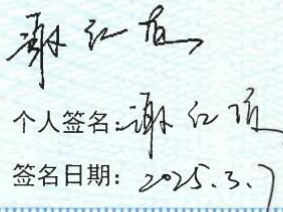 谢红
个人签名:谢红
签名日期:2025.3.7